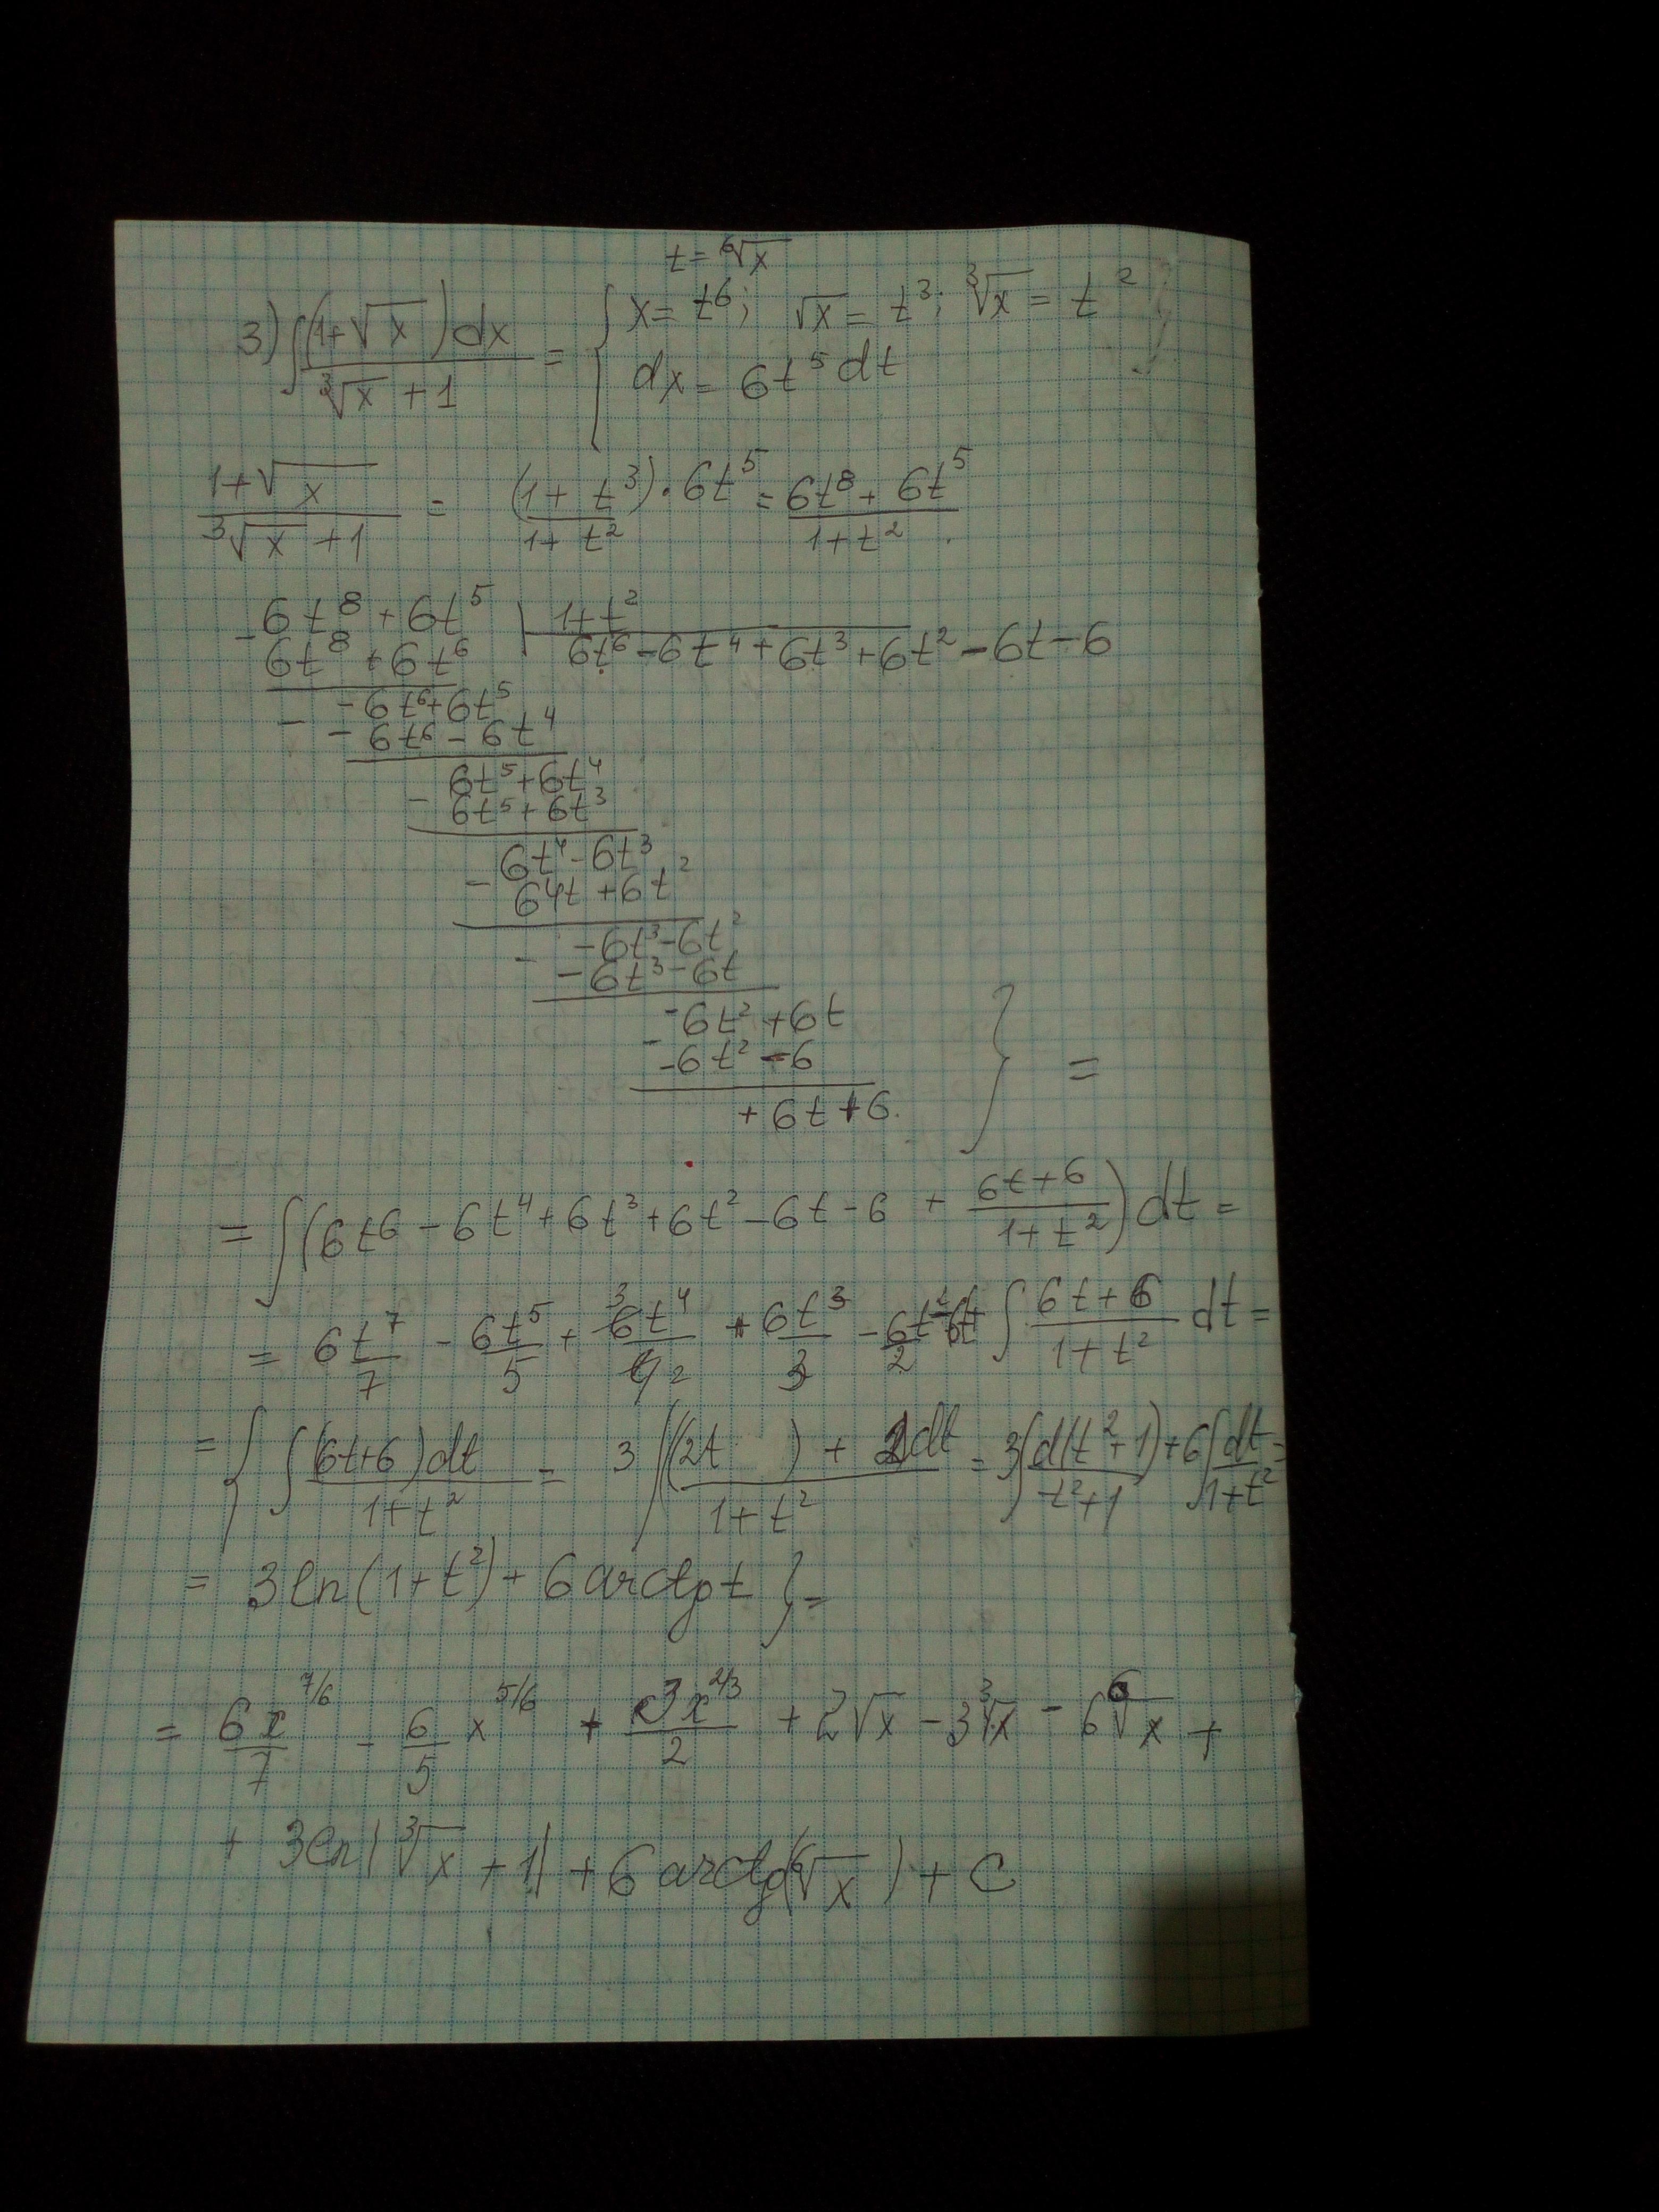 t = ⁶√x
3) ∫ (1+√x)dx / (³√x + 1) = { x = t⁶; √x = t³; ³√x = t² }
dx = 6t⁵dt
(1+√x) / (³√x + 1) = (1+t³)·6t⁵ / (1+t²) = (6t⁸ + 6t⁵) / (1+t²).
- 6t⁸ + 6t⁵ | 1+t²
6t⁸ + 6t⁶ | 6t⁶ - 6t⁴ + 6t³ + 6t² - 6t - 6
- -6t⁶ + 6t⁵
-6t⁶ - 6t⁴
- 6t⁵ + 6t⁴
6t⁵ + 6t³
- 6t⁴ - 6t³
6⁴t + 6t²
- -6t³ - 6t²
-6t³ - 6t
- -6t² + 6t
-6t² - 6
+6t + 6. } =
= ∫(6t⁶ - 6t⁴ + 6t³ + 6t² - 6t - 6 + (6t+6)/(1+t²)) dt =
= 6t⁷/7 - 6t⁵/5 + 3t⁴/2 + 6t³/3 - 6t²/2 - 6t + ∫ (6t+6)/(1+t²) dt =
= { ∫ (6t+6)dt / (1+t²) = 3∫ ((2t ) + 2dt) / (1+t²) = 3∫ d(t²+1)/(t²+1) + 6∫ dt/(1+t²) =
= 3ln(1+t²) + 6arctg t } =
= 6x^(7/6)/7 - 6/5 x^(5/6) + 3x^(2/3)/2 + 2√x - 3³√x - 6⁶√x +
+ 3ln|³√x + 1| + 6arctg(⁶√x) + C